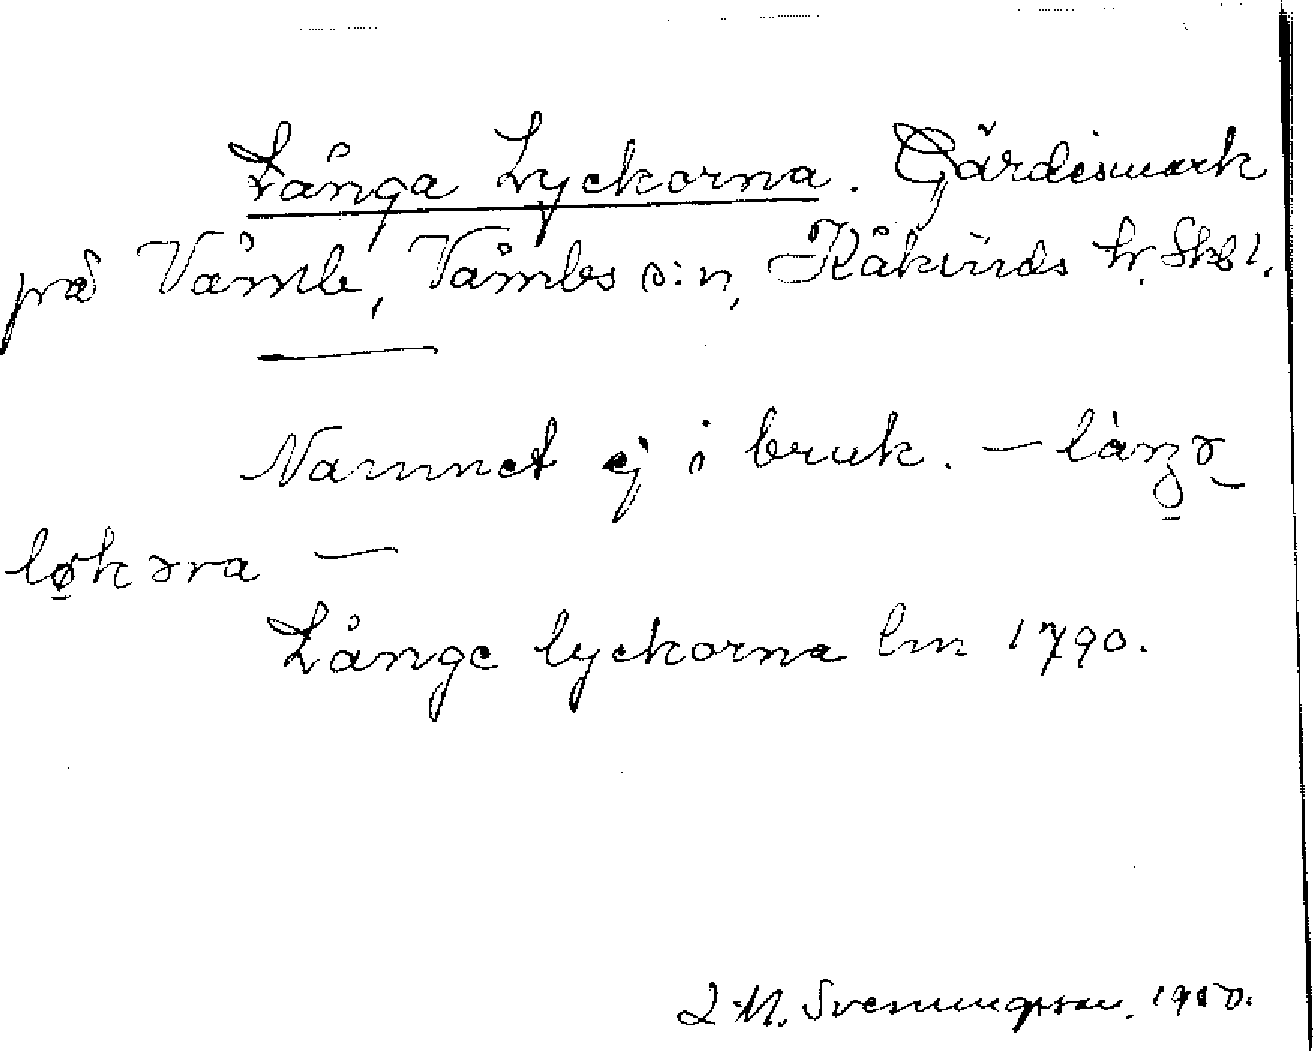 Långa Lyckorna. Gärdesmark
på Våmb, Våmbs s:n, Kåkinds hr. Skbl.
Namnet ej i bruk. —
—
Långe lyckorna lm 1790.
Svenungsson. 1950.